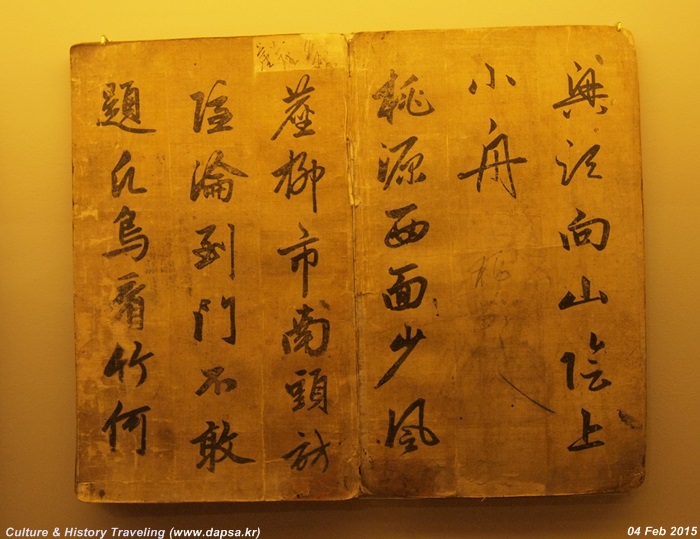 興須向山陰上
小舟
桃源西面少風
塵柳市南頭訪
隱淪到門不敢
題凡鳥看竹何
Culture & History Traveling (www.dapsa.kr)
04 Feb 2015